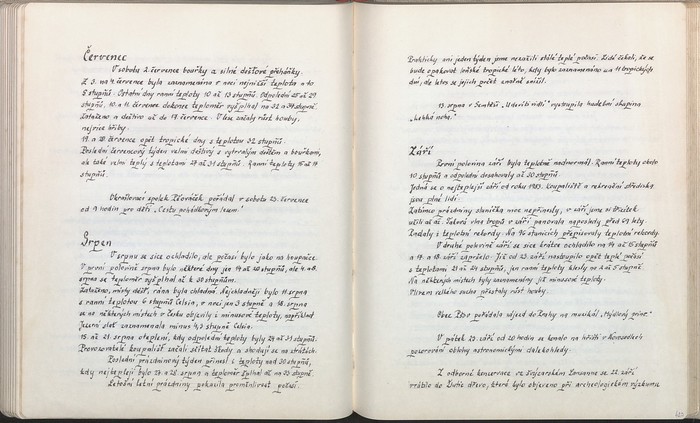 Červenec
V sobotu 2. července bouřky a silné dešťové přeháňky.
Z 3. na 4. července byla zaznamenána v noci nejnižší teplota a to
5 stupňů. Ostatní dny ranní teploty 10 až 13 stupňů. Odpolední 25 až 29
stupňů. 10. a 11. července dokonce teploměr vyšplhal na 32 a 34 stupně.
Zataženo a deštivo až do 17. července. V lese začaly růst houby,
nejvíce hřiby.
19. a 20. července opět tropické dny s teplotou 32 stupňů.
Poslední červencový týden velmi deštivý s vytrvalým deštěm a bouřkami,
ale také velmi teplý s teplotami 27 až 31 stupňů. Ranní teploty 15 až 17
stupňů.
Okrašlovací spolek Ptováček pořádal v sobotu 23. července
od 17 hodin pro děti „Cestu pohádkovým lesem“
Srpen
V srpnu se sice ochladilo, ale počasí bylo jako na houpačce.
V první polovině srpna bylo některé dny jen 17 až 20 stupňů, ale 4. a 5.
srpna se teploměr vyšplhal až k 30 stupňům.
Zataženo, místy déšť, rána byla chladná. Nejchladněji bylo 11. srpna
s ranní teplotou 6 stupňů Celsia, v noci jen 3 stupně a 12. srpna
se na některých místech v Česku objevily i minusové teploty, například
Jezerní slať zaznamenala minus 4,3 stupně Celsia.
15. až 21. srpna oteplení, kdy odpolední teploty byly 24 až 31 stupňů.
Provozovatelé koupališť začali sčítat škody a shodují se na ztrátách.
Poslední prázdninový týden přinesl i teploty nad 30 stupňů,
kdy nejteplejší bylo 27. a 28. srpna a teploměr šplhal až na 33 stupně.
Letošní letní prázdniny pokazila proměnlivost počasí.
Prakticky ani jeden týden jsme nezažili stálé teplé počasí. Lidé čekali, že se
bude opakovat loňské tropické léto, kdy bylo zaznamenáno 41 tropických
dní, ale letos se jejich počet značně snížil.
13. srpna v Semtěši „Udeřili židli“ vystoupila hudební skupina
„Lehká noha.“
Září
První polovina září byla teplotně nadnormální. Ranní teploty okolo
10 stupňů a odpolední dosahovaly až 30 stupňů.
Jedná se o nejteplejší září od roku 1983. Koupaliště a rekreační střediska
jsou plné lidí.
Zatímco prázdniny sluníčka moc nepřinesly, v září jsme si zážitek
užili až až. Taková vlna tropů v září panovala naposledy před 69 lety.
Padaly i teplotní rekordy. Na 96 stanicích přepisovaly teplotní rekordy.
V druhé polovině září se sice krátce ochladilo na 14 až 15 stupňů
a 17. a 18. září zapršelo. Již od 23. září nastoupilo opět teplé počasí
s teplotami 21 až 24 stupňů, jen ranní teploty klesly na 4 až 5 stupňů.
Na některých místech byly zaznamenány již minusové teploty.
Vlivem velkého sucha přestaly růst houby.
Obec Ptáov pořádala zájezd do Prahy na muzikál „Mýdlový princ“
V pátek 23. září od 20 hodin se konalo na hřišti v Horosedlech
pozorování oblohy astronomickými dalekohledy.
Z odborné konzervace ve švýcarském Lausanne se 22. září
vrátilo do Dívčic dřevo, které bylo objeveno při archeologickém výzkumu